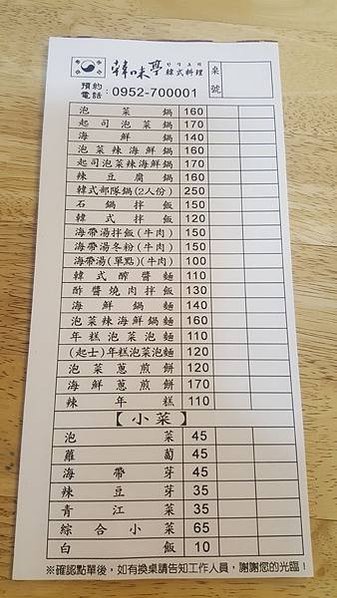 韓味亭 한미정 韓式料理 桌號
預約電話:0952-700001
泡菜鍋 160
起司泡菜鍋 170
海鮮鍋 140
泡菜辣海鮮鍋 160
起司泡菜辣海鮮鍋 170
辣豆腐鍋 160
韓式部隊鍋(2人份) 250
石鍋拌飯 150
韓式拌飯 120
海帶湯拌飯(牛肉) 150
海帶湯冬粉(牛肉) 150
海帶湯(單點)(牛肉) 100
韓式醡醬麵 110
酢醬燒肉拌飯 130
海鮮鍋麵 140
泡菜辣海鮮鍋麵 160
年糕泡菜泡麵 110
(起士)年糕泡菜泡麵 120
泡菜蔥煎餅 120
海鮮蔥煎餅 170
辣年糕 110
【小菜】
泡菜 45
蘿蔔 45
海帶芽 45
辣豆芽 35
青江菜 35
綜合小菜 65
白飯 10
※確認點單後,如有換桌請告知工作人員,謝謝您的光臨!